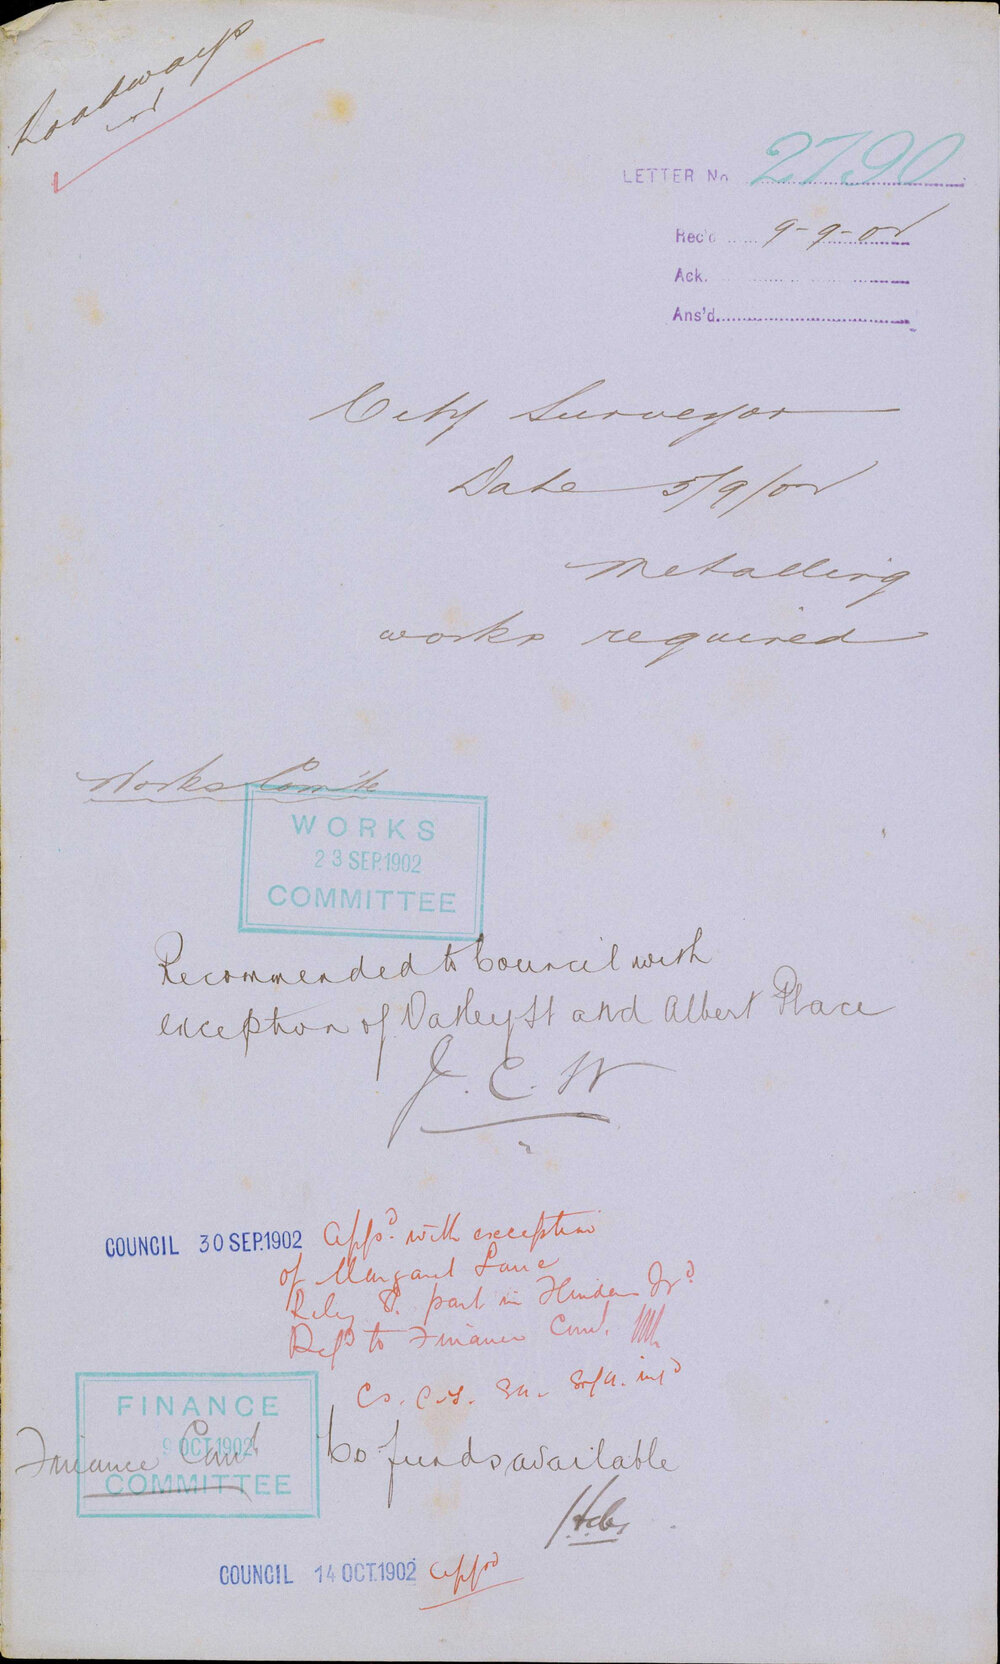 Roadways
LETTER No 2790
Rec'd 9-9-02
Ack.
Ans'd.
City Surveyor
Date 5/9/02
Metalling
works required
Works Com'te
WORKS
23 SEP.1902
COMMITTEE
Recommended to Council with
exception of Oatley St and Albert Place
J. C. W
COUNCIL 30 SEP.1902 Appd. with exception
of Margaret Lane
Riley St. part in
Refd to Finance Com.
FINANCE
9 OCT.1902
COMMITTEE
Finance Com
funds available
COUNCIL 14 OCT.1902 appd